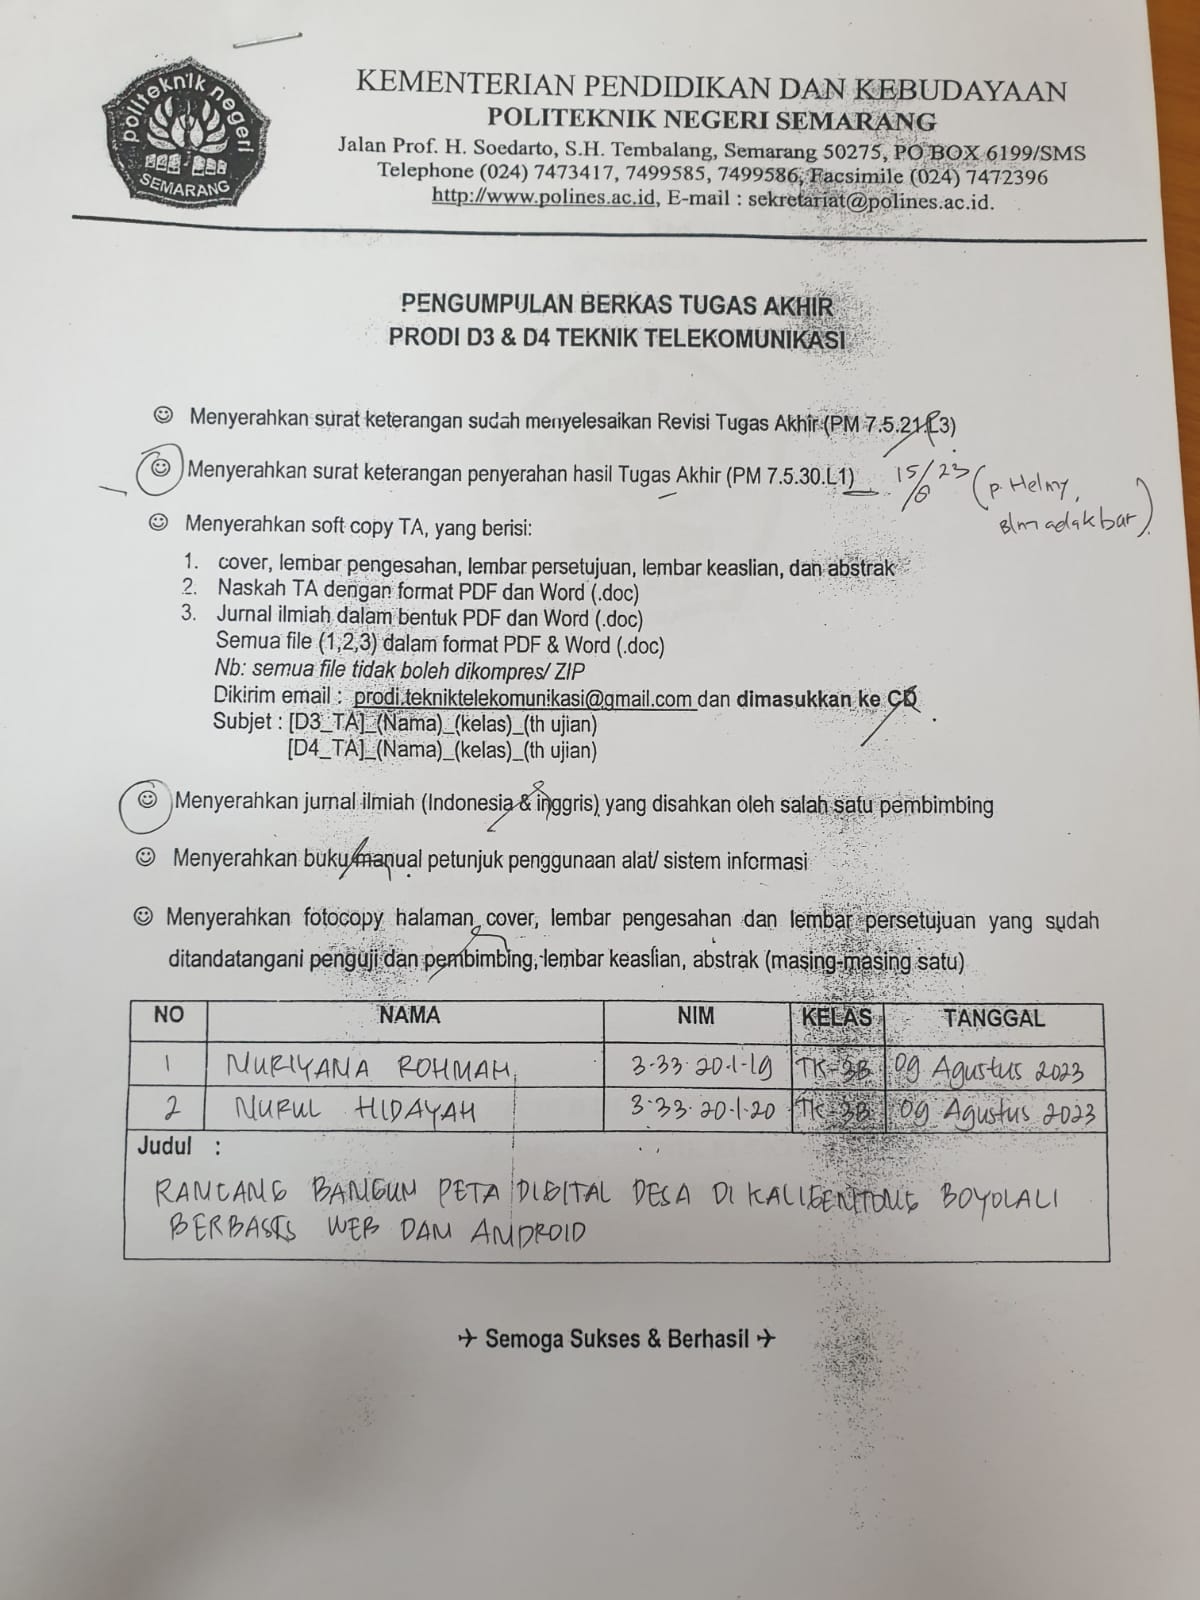 politeknik negeri
SEMARANG
KEMENTERIAN PENDIDIKAN DAN KEBUDAYAAN
POLITEKNIK NEGERI SEMARANG
Jalan Prof. H. Soedarto, S.H. Tembalang, Semarang 50275, PO BOX 6199/SMS
Telephone (024) 7473417, 7499585, 7499586, Facsimile (024) 7472396
http://www.polines.ac.id, E-mail : sekretariat@polines.ac.id.
PENGUMPULAN BERKAS TUGAS AKHIR
PRODI D3 & D4 TEKNIK TELEKOMUNIKASI
☺ Menyerahkan surat keterangan sudah menyelesaikan Revisi Tugas Akhir (PM 7.5.21.L3)
☺ Menyerahkan surat keterangan penyerahan hasil Tugas Akhir (PM 7.5.30.L1) 15/23 (p. Helmy,
blm ada kbar)
☺ Menyerahkan soft copy TA, yang berisi:
1. cover, lembar pengesahan, lembar persetujuan, lembar keaslian, dan abstrak
2. Naskah TA dengan format PDF dan Word (.doc)
3. Jurnal ilmiah dalam bentuk PDF dan Word (.doc)
Semua file (1,2,3) dalam format PDF & Word (.doc)
Nb: semua file tidak boleh dikompres/ ZIP
Dikirim email : prodi.tekniktelekomunikasi@gmail.com dan dimasukkan ke CD
Subjet : [D3_TA]_(Nama)_(kelas)_(th ujian)
[D4_TA]_(Nama)_(kelas)_(th ujian)
☺ Menyerahkan jurnal ilmiah (Indonesia & inggris) yang disahkan oleh salah satu pembimbing
☺ Menyerahkan buku manual petunjuk penggunaan alat/ sistem informasi
☺ Menyerahkan fotocopy halaman cover, lembar pengesahan dan lembar persetujuan yang sudah
ditandatangani penguji dan pembimbing, lembar keaslian, abstrak (masing-masing satu)
NO NAMA NIM KELAS TANGGAL
1 NURIYANA ROHMAH 3.33.20.1.19 TK-3B 09 Agustus 2023
2 NURUL HIDAYAH 3.33.20.1.20 TK-3B 09 Agustus 2023
Judul :
RANCANG BANGUN PETA DIGITAL DESA DI KALIGENTONG BOYOLALI
BERBASIS WEB DAN ANDROID
✈ Semoga Sukses & Berhasil ✈